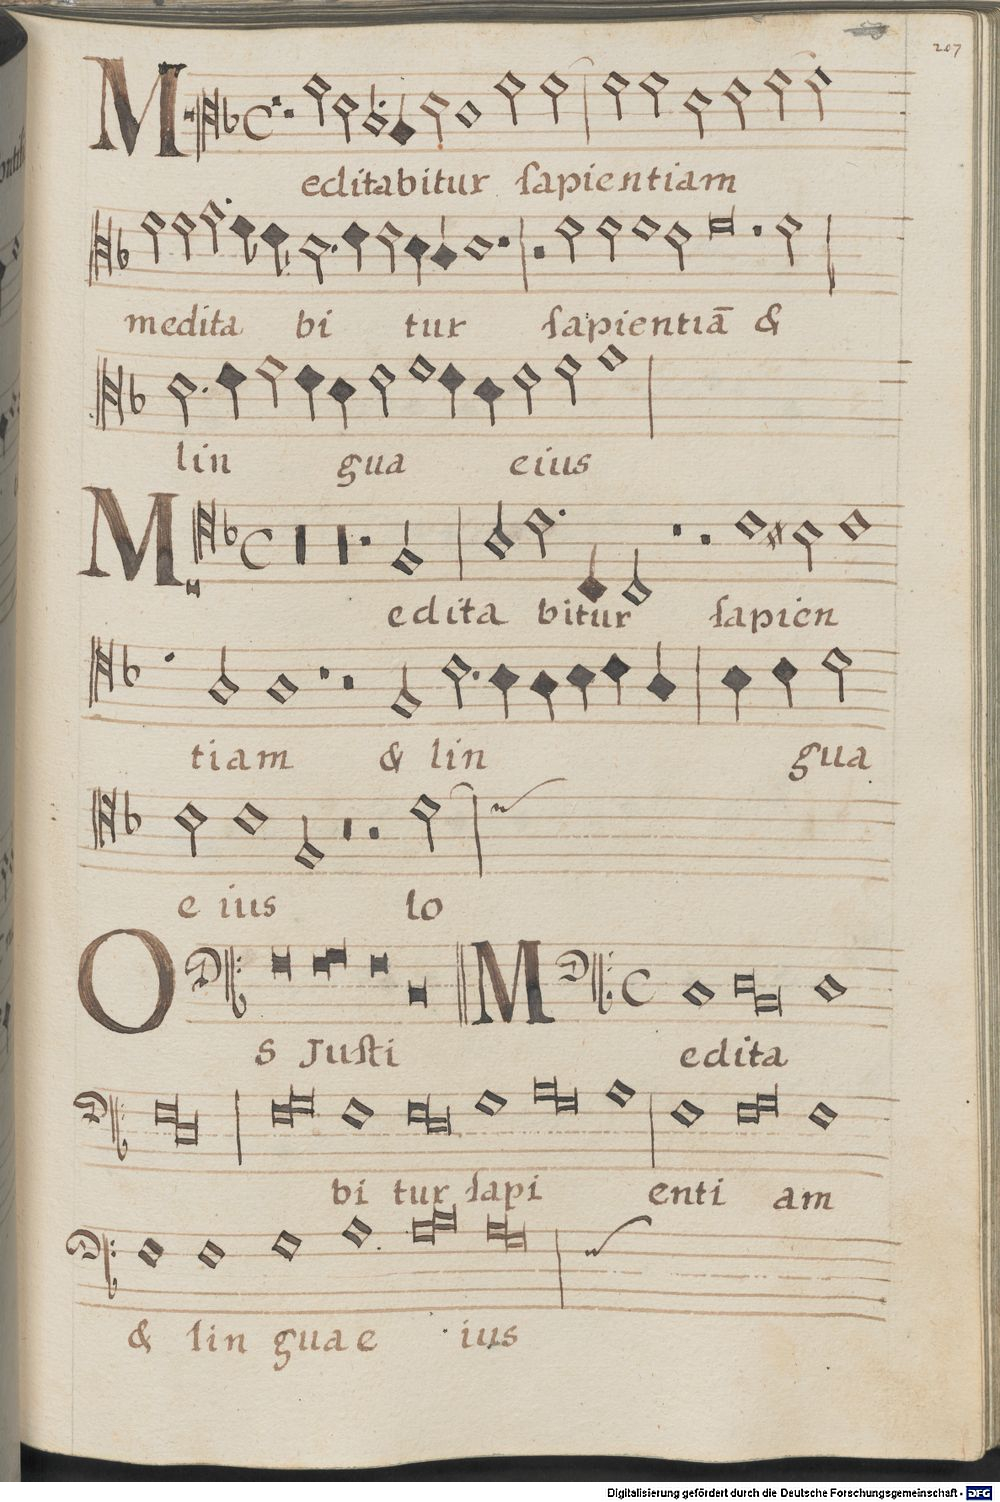 207
Meditabitur sapientiam
medita bi tur sapientiā &
lin gua eius
Medita bitur sapien
tiam & lin gua
e ius lo
Os Justi Medita
bi tur sapi enti am
& lin gua e ius
Digitalisierung gefördert durch die Deutsche Forschungsgemeinschaft - DFG